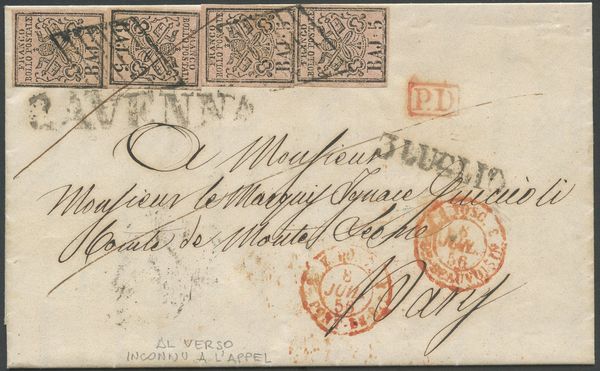 FRANCO
BOLLO POSTALE
BAJ: 5
BAJ: 5
FRANCO
BOLLO POSTALE
BAJ: 5
FRANCO
BOLLO POSTALE
BAJ: 5
RAVENNA
P.D.
3 LUGLIO
A Monsieur
Monsieur le Marquis Ignace Guiccioli
Comte de Monte Leone
Paris
8
56
8
56
AL VERSO
INCONNU A L'APPEL